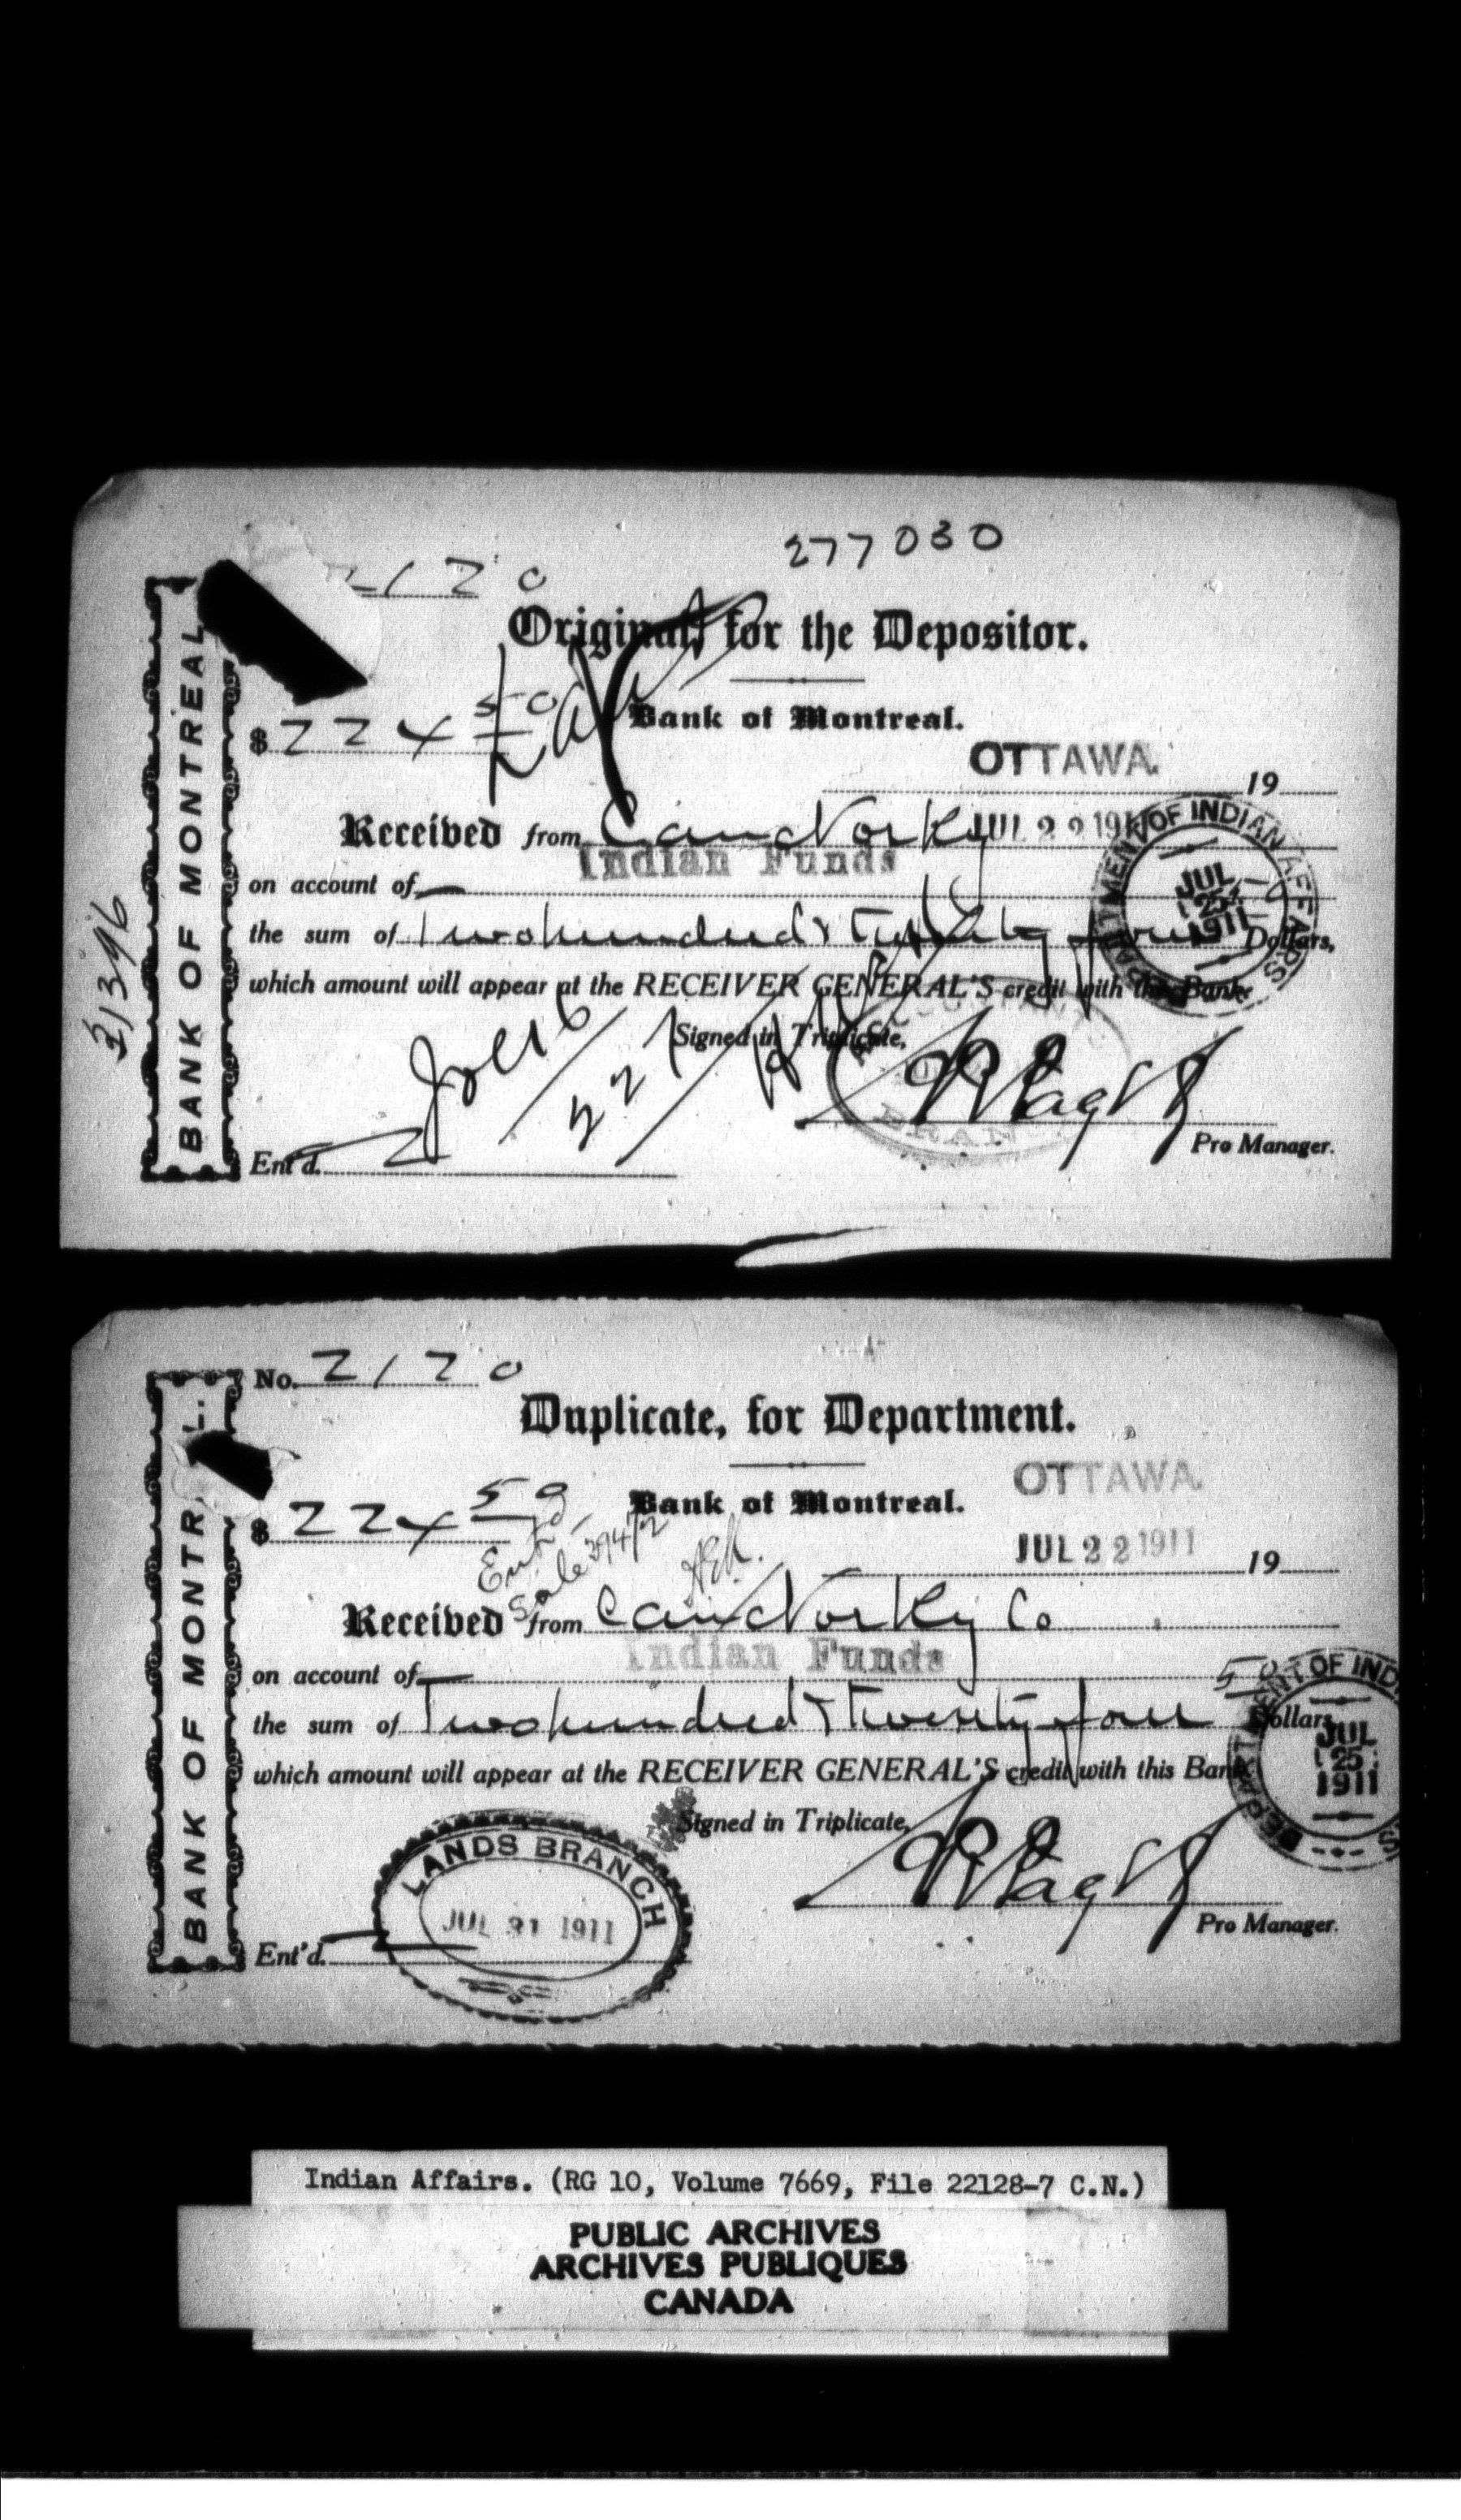 277030
2120
Original, for the Depositor.
$ 224 50
Bank of Montreal.
OTTAWA
19
JUL 22 191
Received from Can Nor Ry
Indian Funds
on account of
the sum of Two hundred & Twenty four Dollars,
which amount will appear at the RECEIVER GENERAL'S credit with this Bank
Signed in Triplicate,
Pro Manager.
Ent'd.
BANK OF MONTREAL
21396
DEPARTMENT OF INDIAN AFFAIRS
JUL 25 1911
No. 2120
Duplicate, for Department.
OTTAWA
$ 224 50
Bank of Montreal.
JUL 22 1911
19
Ent'd
Sale 39472
Received from Can Nor Ry Co
Indian Funds
on account of
50
the sum of Two hundred & Twenty four Dollars
which amount will appear at the RECEIVER GENERAL'S credit with this Bank
Signed in Triplicate,
Pro Manager.
Ent'd.
LANDS BRANCH
JUL 31 1911
BANK OF MONTR L.
DEPARTMENT OF INDI S
JUL 25 1911
Indian Affairs. (RG 10, Volume 7669, File 22128-7 C.N.)
PUBLIC ARCHIVES
ARCHIVES PUBLIQUES
CANADA